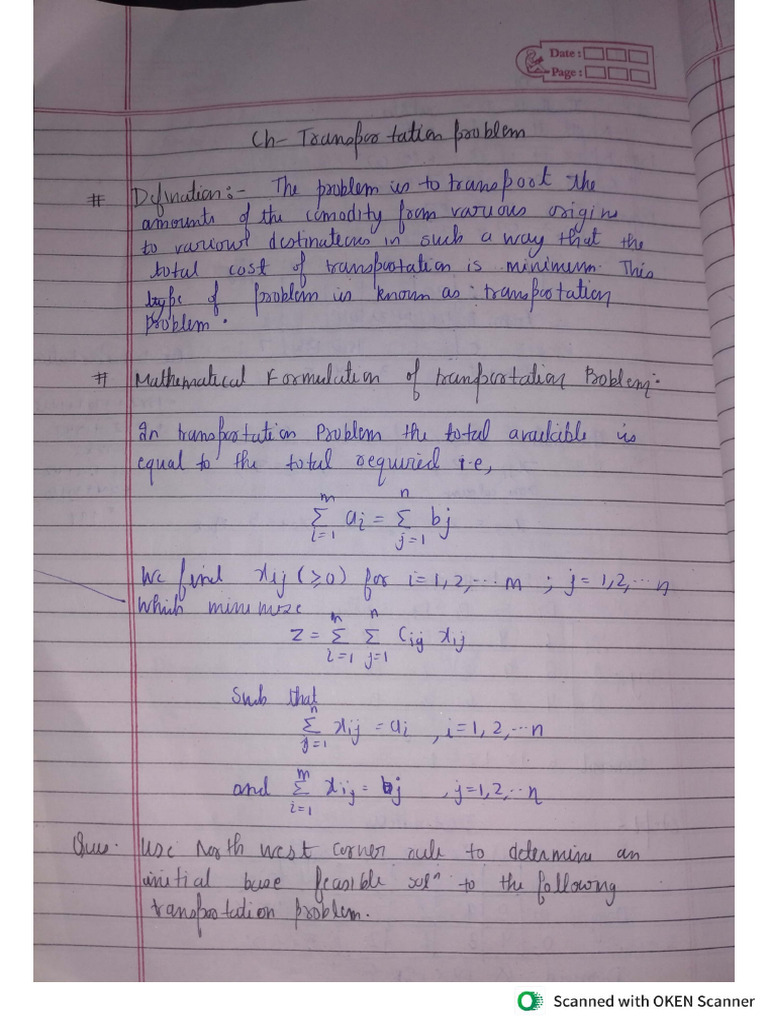 Date :
Page :
Ch- Transportation problem
# Defination:- The problem is to transport the
amounts of the comodity from various origins
to various destinations in such a way that the
total cost of transportation is minimum. This
type of problem is known as transportation
problem.
# Mathematical Formulation of transportation Problem:-
In transportation Problem the total available is
equal to the total required i.e,
m n
Σ ai = Σ bj
i=1 j=1
We find xij (≥0) for i=1,2,... m ; j=1,2,... n
which minimise
m n
Z = Σ Σ Cij xij
i=1 j=1
Such that
n
Σ xij = ai , i=1,2,...n
j=1
m
and Σ xij = bj , j=1,2,...n
i=1
Que. Use North west corner rule to determine an
initial base feasible solⁿ to the following
transportation problem.
Scanned with OKEN Scanner